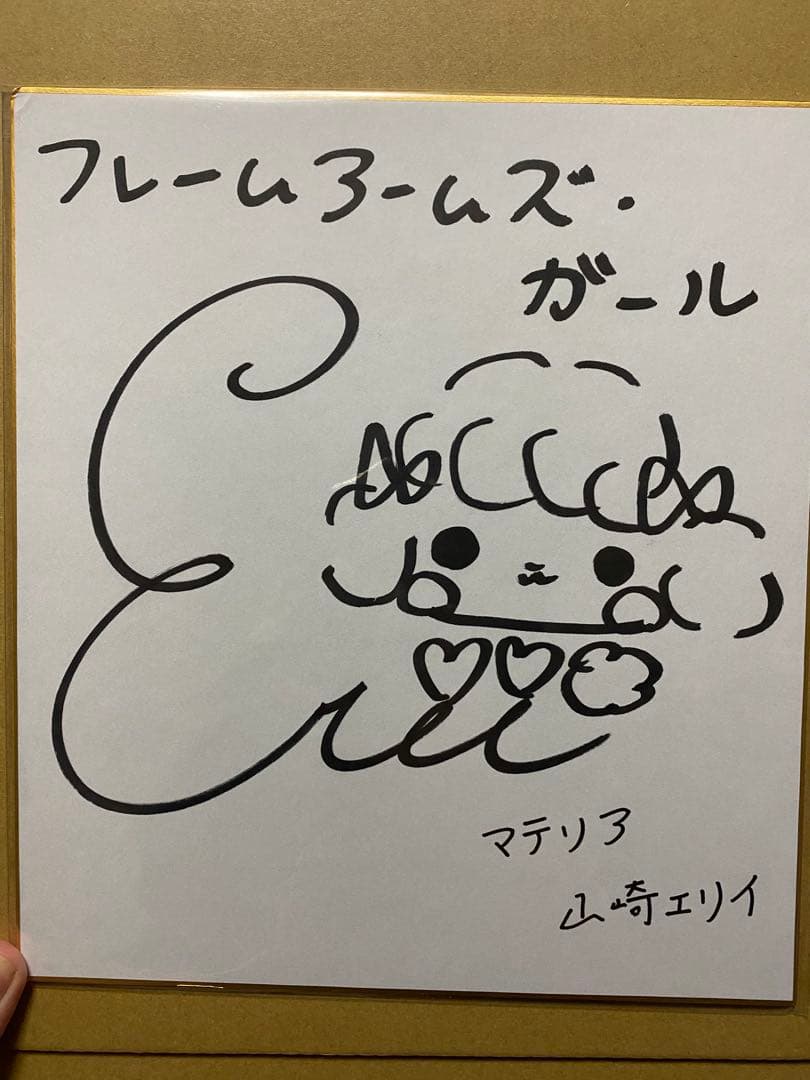 フレームアームズ・
ガール
Erii
マテリア
山崎エリイ